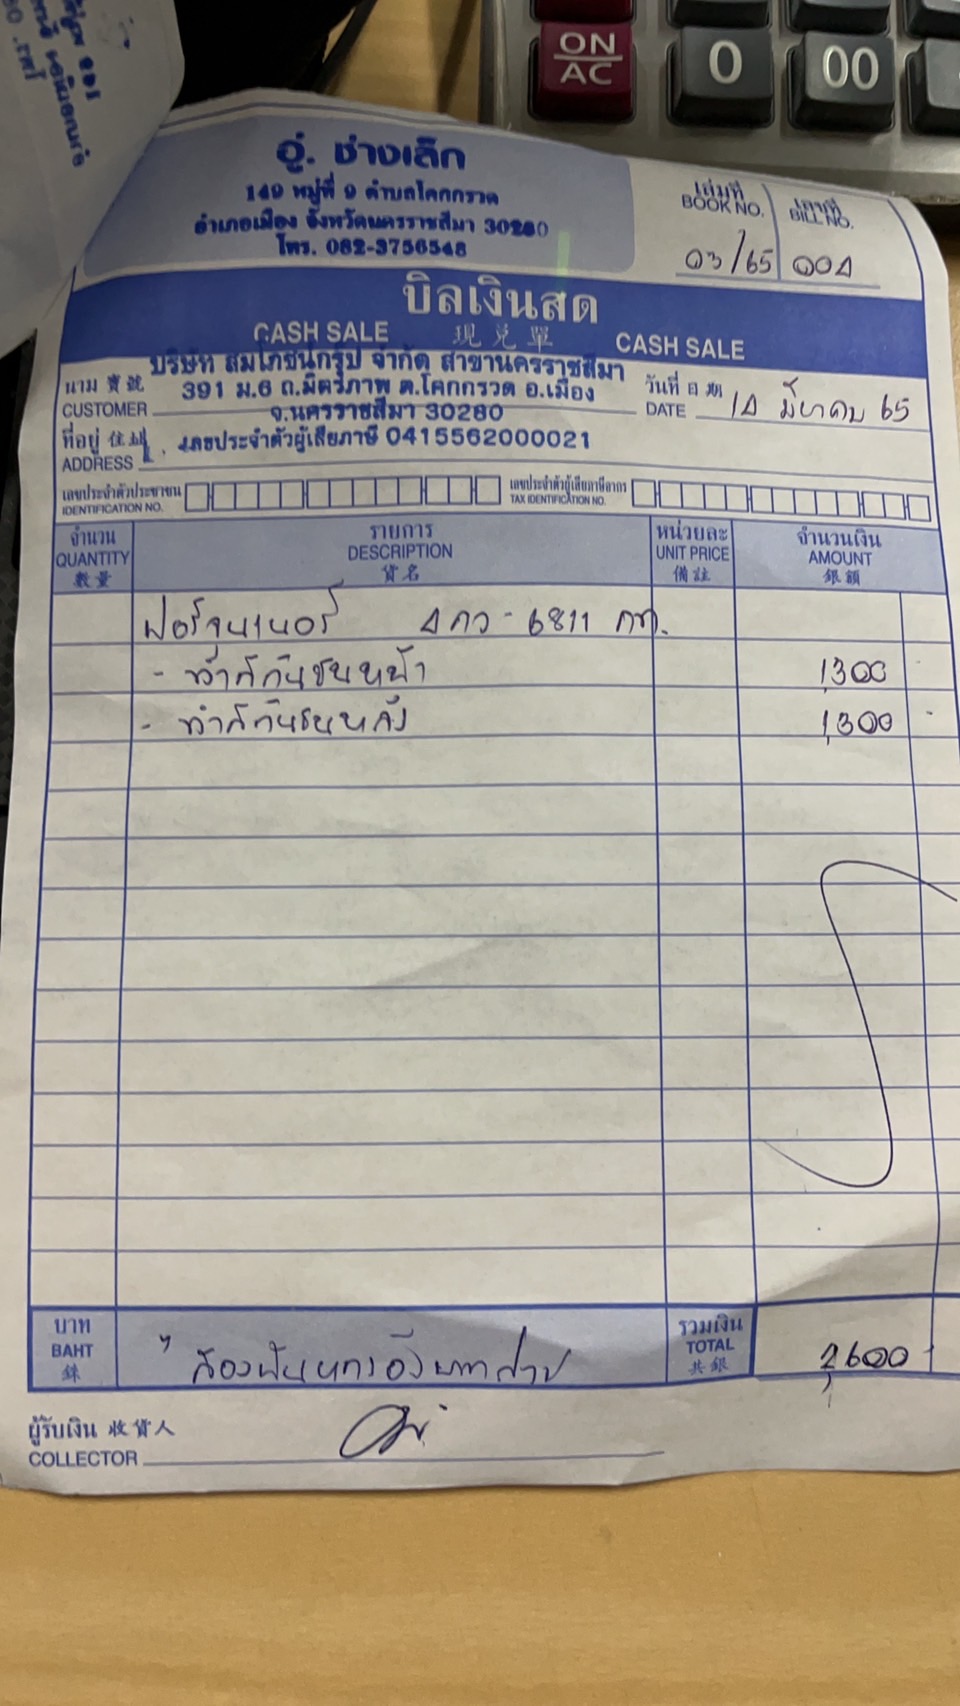 ON
AC
0
00
อู่. ช่างเล็ก
149 หมู่ที่ 9 ตำบลโคกกรวด
อำเภอเมือง จังหวัดนครราชสีมา 30280
โทร. 082-3756548
เล่มที่ เลขที่
BOOK NO. BILL NO.
03/65 004
บิลเงินสด
CASH SALE 現兌單 CASH SALE
บริษัท สมโภชน์กรุ๊ป จำกัด สาขานครราชสีมา
391 ม.6 ถ.มิตรภาพ ต.โคกกรวด อ.เมือง
จ.นครราชสีมา 30280
เลขประจำตัวผู้เสียภาษี 0415562000021
นาม 寶號
CUSTOMER
วันที่ 日期
DATE 14 มีนาคม 65
ที่อยู่ 住址
ADDRESS
เลขประจำตัวประชาชน
IDENTIFICATION NO.
เลขประจำตัวผู้เสียภาษีอากร
TAX IDENTIFICATION NO.
จำนวน รายการ หน่วยละ จำนวนเงิน
QUANTITY DESCRIPTION UNIT PRICE AMOUNT
數量 貨名 備註 銀額
ฟอร์จูนเนอร์ 4กว-6811 กท.
- ทำสีกันชนหน้า 1,300
- ทำสีกันชนหลัง 1,300 -
บาท
BAHT
銖
สองพันหกร้อยบาทถ้วน
รวมเงิน
TOTAL
共銀
2,600
ผู้รับเงิน 收貨人
COLLECTOR